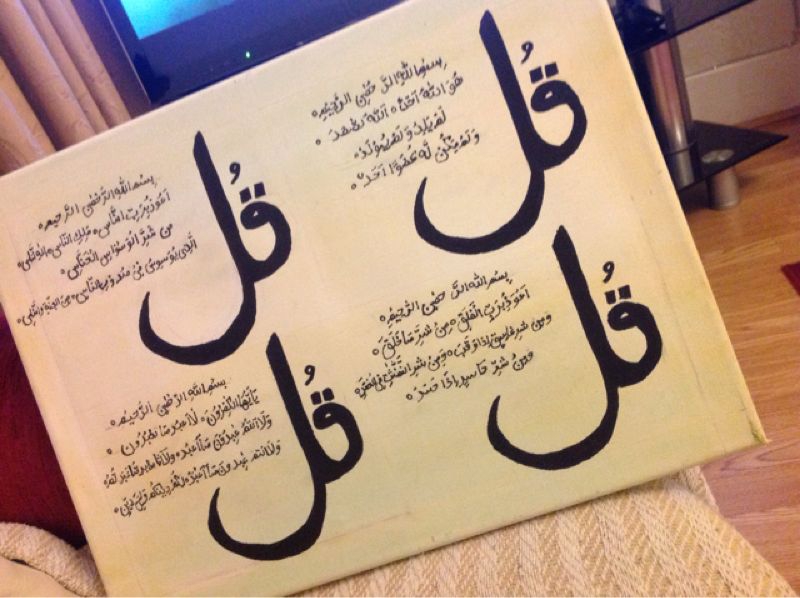 قُل
بِسْمِ اللهِ الرَّحْمٰنِ الرَّحِيْمِ
هُوَ اللهُ اَحَدٌ اَللهُ الصَّمَدُ
لَمْ يَلِدْ وَلَمْ يُوْلَدْ
وَلَمْ يَكُنْ لَّهٗ كُفُوًا اَحَدٌ
قُل
بِسْمِ اللهِ الرَّحْمٰنِ الرَّحِيْمِ
اَعُوْذُ بِرَبِّ النَّاسِ مَلِكِ النَّاسِ اِلٰهِ النَّاسِ
مِنْ شَرِّ الْوَسْوَاسِ الْخَنَّاسِ
الَّذِيْ يُوَسْوِسُ فِيْ صُدُوْرِ النَّاسِ مِنَ الْجِنَّةِ وَالنَّاسِ
قُل
بِسْمِ اللهِ الرَّحْمٰنِ الرَّحِيْمِ
اَعُوْذُ بِرَبِّ الْفَلَقِ مِنْ شَرِّ مَا خَلَقَ
وَمِنْ شَرِّ غَاسِقٍ اِذَا وَقَبَ وَمِنْ شَرِّ النَّفّٰثٰتِ فِي الْعُقَدِ
وَمِنْ شَرِّ حَاسِدٍ اِذَا حَسَدَ
قُل
بِسْمِ اللهِ الرَّحْمٰنِ الرَّحِيْمِ
يٰاَيُّهَا الْكٰفِرُوْنَ لَا اَعْبُدُ مَا تَعْبُدُوْنَ
وَلَا اَنْتُمْ عٰبِدُوْنَ مَا اَعْبُدُ وَلَا اَنَا عَابِدٌ مَّا عَبَدْتُّمْ
وَلَا اَنْتُمْ عٰبِدُوْنَ مَا اَعْبُدُ لَكُمْ دِيْنُكُمْ وَلِيَ دِيْنِ